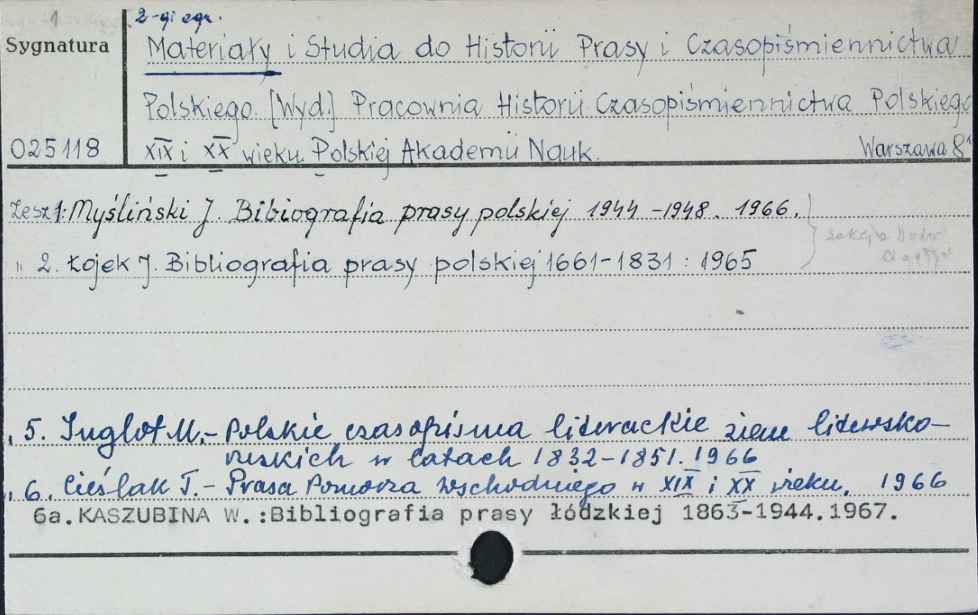 2-gi egz.
Sygnatura
Materiały i Studia do Historii Prasy i Czasopiśmiennictwa
Polskiego. [Wyd.] Pracownia Historii Czasopiśmiennictwa Polskiego
025118
XIX i XX wieku Polskiej Akademii Nauk. Warszawa 8°
Zesz 1: Myśliński J. Bibiografia prasy polskiej 1944-1948. 1966.
" 2. Łojek J. Bibliografia prasy polskiej 1661-1831: 1965
" 5. Inglot M.- Polskie czasopisma literackie ziem litewsko-
ruskich w latach 1832-1851. 1966
" 6. Cieślak T.- Prasa Pomorza Wschodniego w XIX i XX wieku. 1966
6a. KASZUBINA W.:Bibliografia prasy łódzkiej 1863-1944.1967.